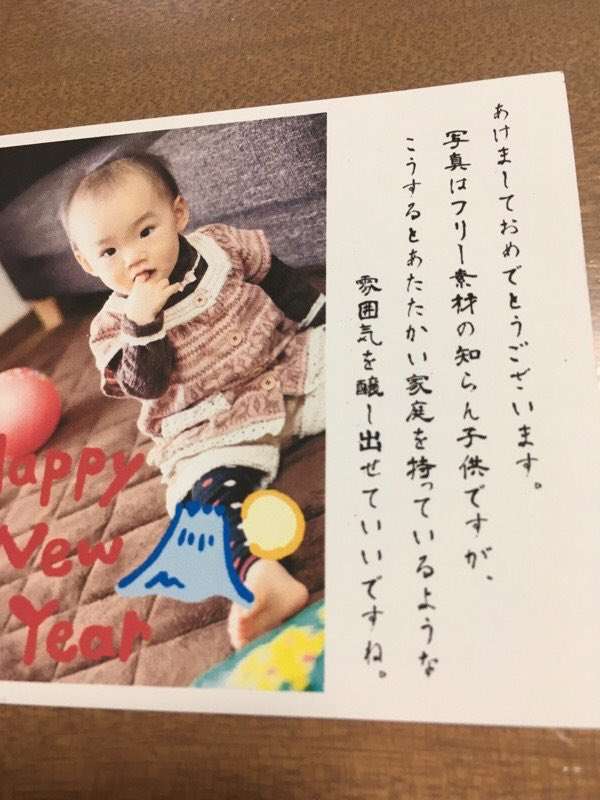 あけましておめでとうございます。
写真はフリー素材の知らん子供ですが、
こうするとあたたかい家庭を持っているような
雰囲気を醸し出せていいですね。
Happy
New
Year